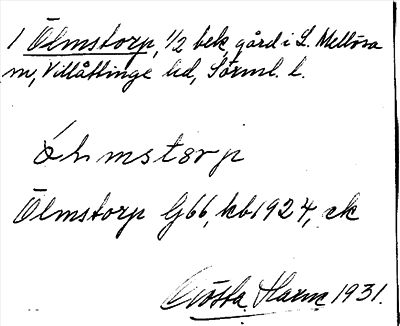 1 Ölmstorp, 1/2 bek. gård i L. Mellösa
sn, Villåttinge hd, Sörml. l.
Ölmstorp G66, kb 1924, ek
Gösta Harne 1931.